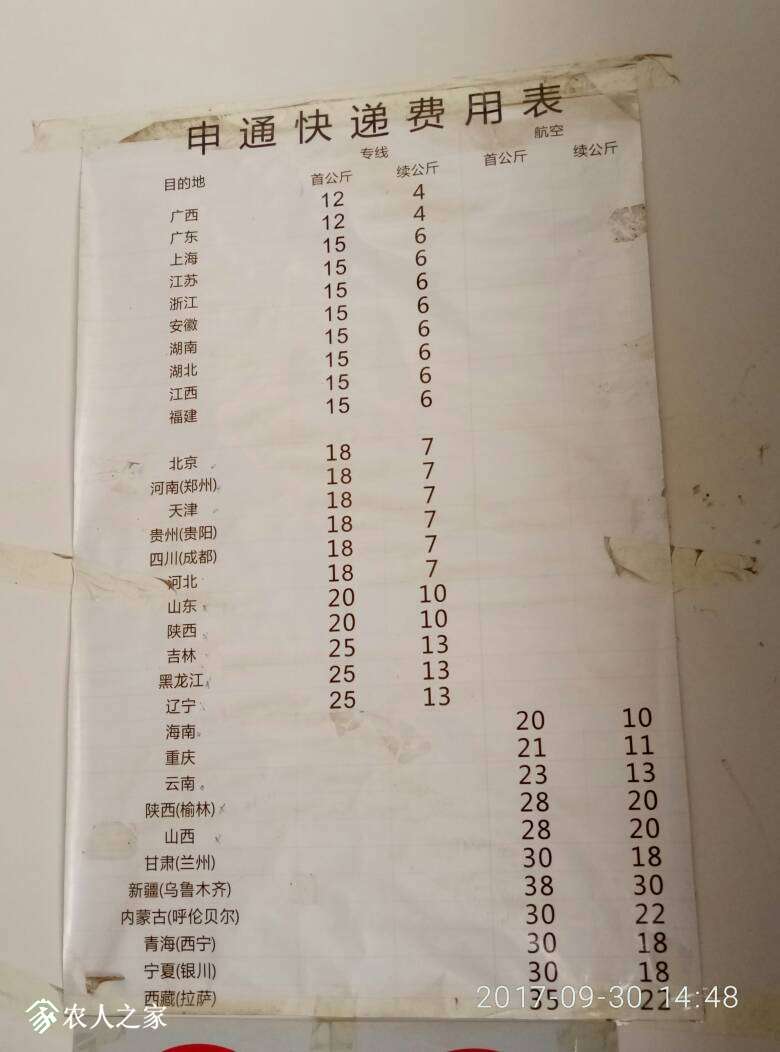 申通快递费用表
专线 航空
目的地 首公斤 续公斤 首公斤 续公斤
广西 12 4
广东 12 4
上海 15 6
江苏 15 6
浙江 15 6
安徽 15 6
湖南 15 6
湖北 15 6
江西 15 6
福建 15 6
北京 18 7
河南(郑州) 18 7
天津 18 7
贵州(贵阳) 18 7
四川(成都) 18 7
河北 18 7
山东 20 10
陕西 20 10
吉林 25 13
黑龙江 25 13
辽宁 25 13
海南 20 10
重庆 21 11
云南 23 13
陕西(榆林) 28 20
山西 28 20
甘肃(兰州) 30 18
新疆(乌鲁木齐) 38 30
内蒙古(呼伦贝尔) 30 22
青海(西宁) 30 18
宁夏(银川) 30 18
西藏(拉萨) 35 22
2017-09-30 14:48
农人之家